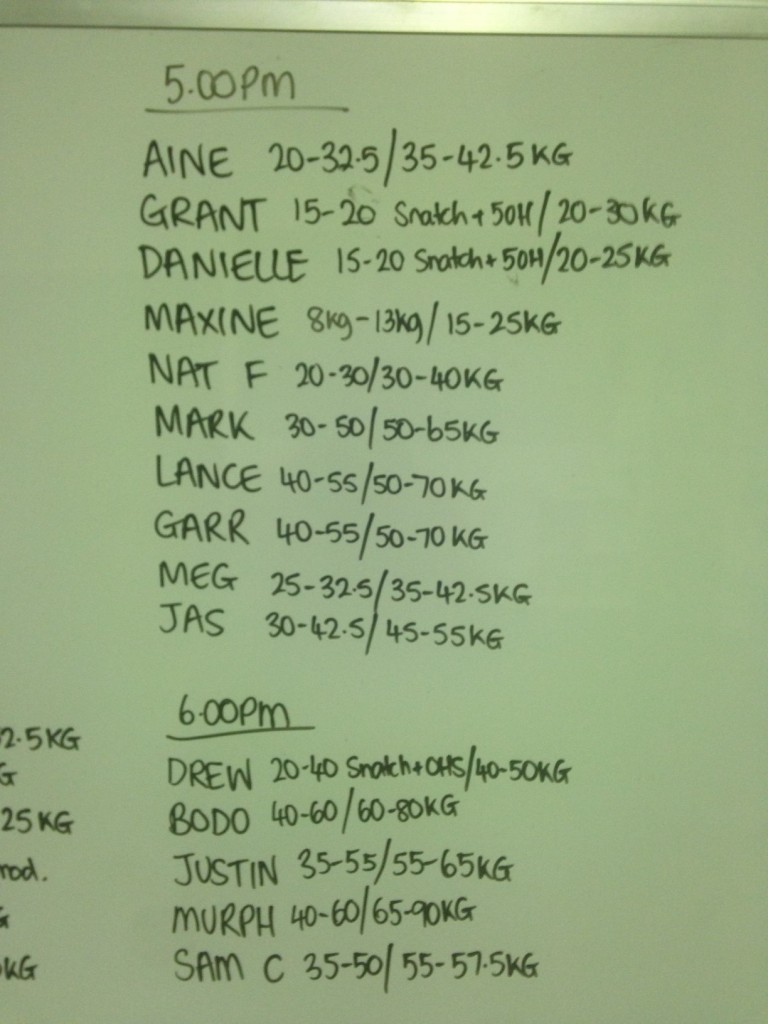 5.00PM
AINE 20-32.5/35-42.5KG
GRANT 15-20 Snatch+SOH/20-30KG
DANIELLE 15-20 Snatch+SOH/20-25KG
MAXINE 8kg-13kg/15-25KG
NAT F 20-30/30-40KG
MARK 30-50/50-65KG
LANCE 40-55/50-70KG
GARR 40-55/50-70KG
MEG 25-32.5/35-42.5KG
JAS 30-42.5/45-55KG
2.5KG
G
25KG
rod.
G
KG
6.00PM
DREW 20-40 Snatch+OHS/40-50KG
BODO 40-60/60-80KG
JUSTIN 35-55/55-65KG
MURPH 40-60/65-90KG
SAM C 35-50/55-57.5KG